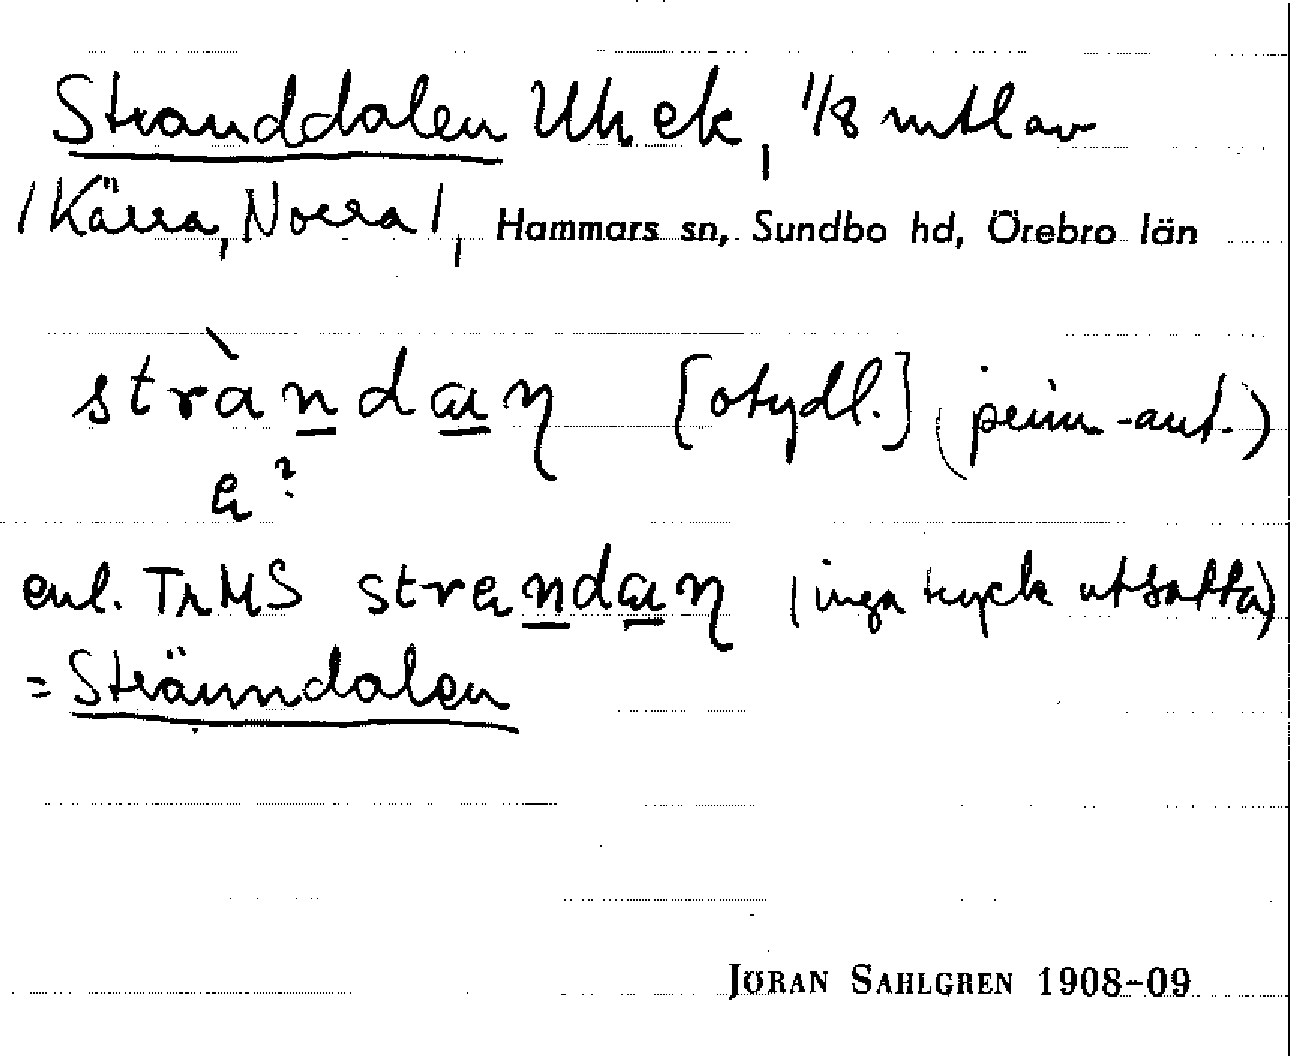 Stranddalen Uh ek, 1/8 mtl av
/Kärra, Norra/, Hammars sn, Sundbo hd, Örebro län
stràndaŋ [otydl.] (penn-ant.)
a?
enl. TrMS strandaŋ (inga tryck utsatta)
= Stränndalen
JÖRAN SAHLGREN 1908-09